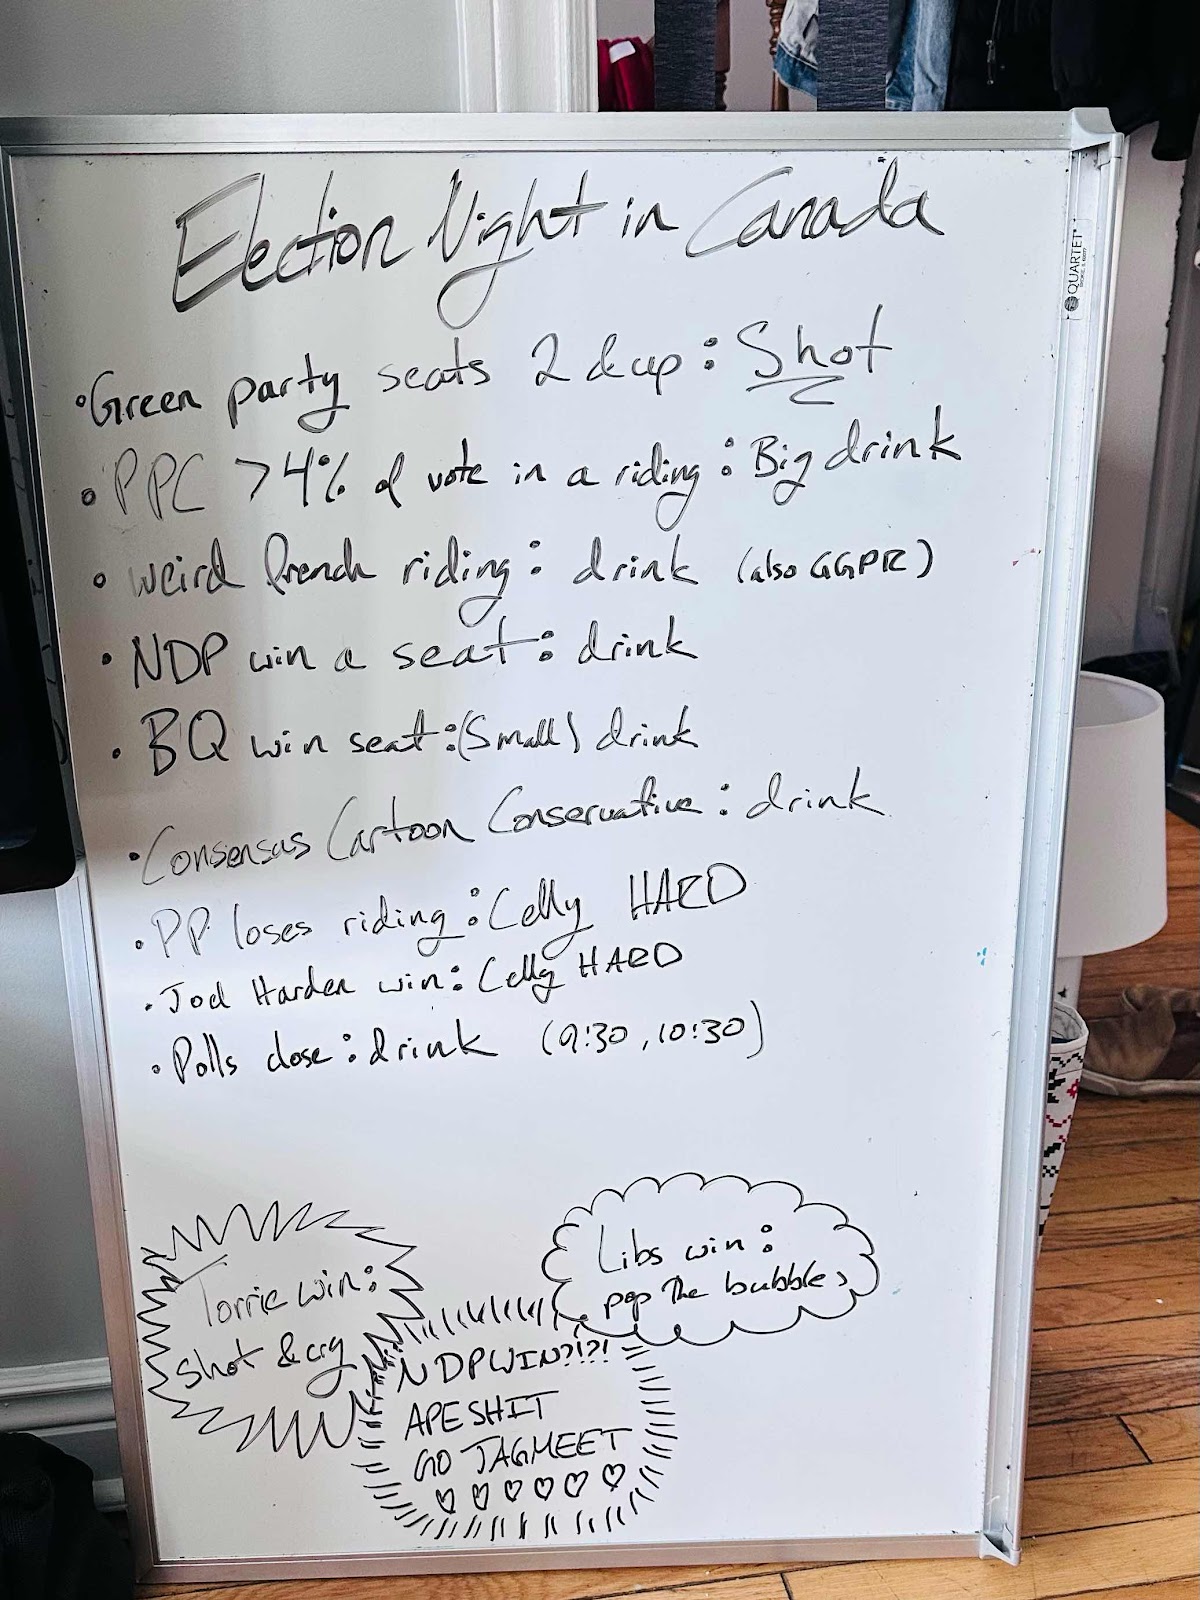 Election Night in Canada
QUARTET
• Green party seats 2 & up : Shot
• PPC > 4% of vote in a riding : Big drink
• weird french riding : drink (also GGPR)
• NDP win a seat : drink
• BQ win seat : (Small) drink
• Consensus Cartoon Conservative : drink
• PP loses riding : Celly HARD
• Joel Harden win : Celly HARD
• Polls close : drink (9:30, 10:30)
Libs win :
pop the bubbles
Torrie win :
shot & cry
NDP WIN?!?!
APESHIT
GO JAGMEET
♡ ♡ ♡ ♡ ♡ ♡